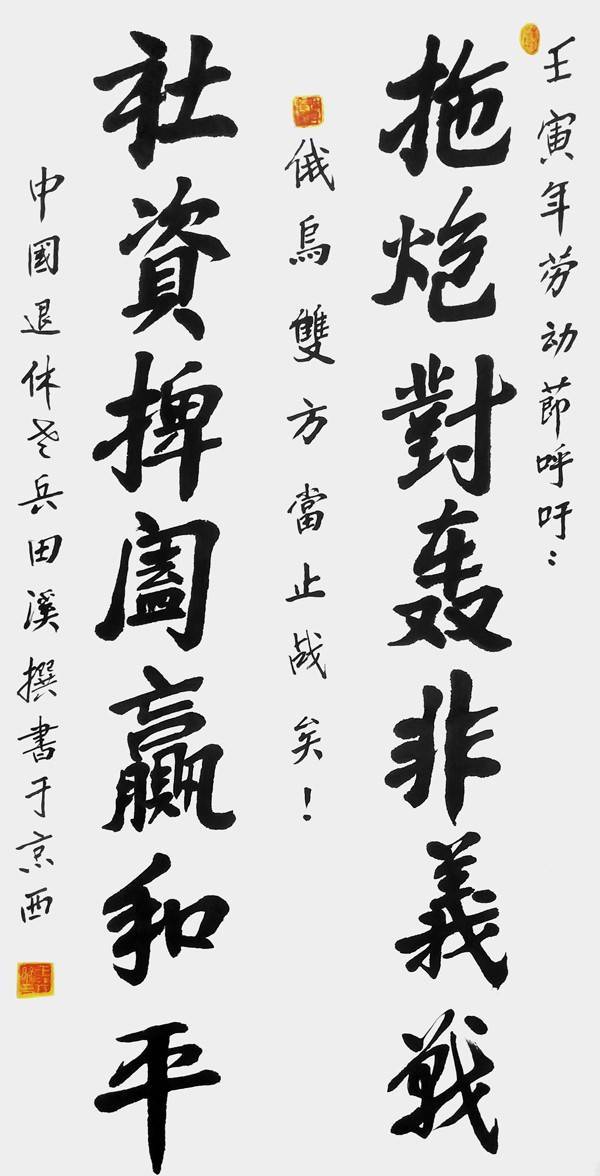 壬寅年劳动節呼吁:
拖炮對轰非義戰
俄烏雙方當止战矣!
社資捭阖赢和平
中國退休老兵田溪撰書于京西